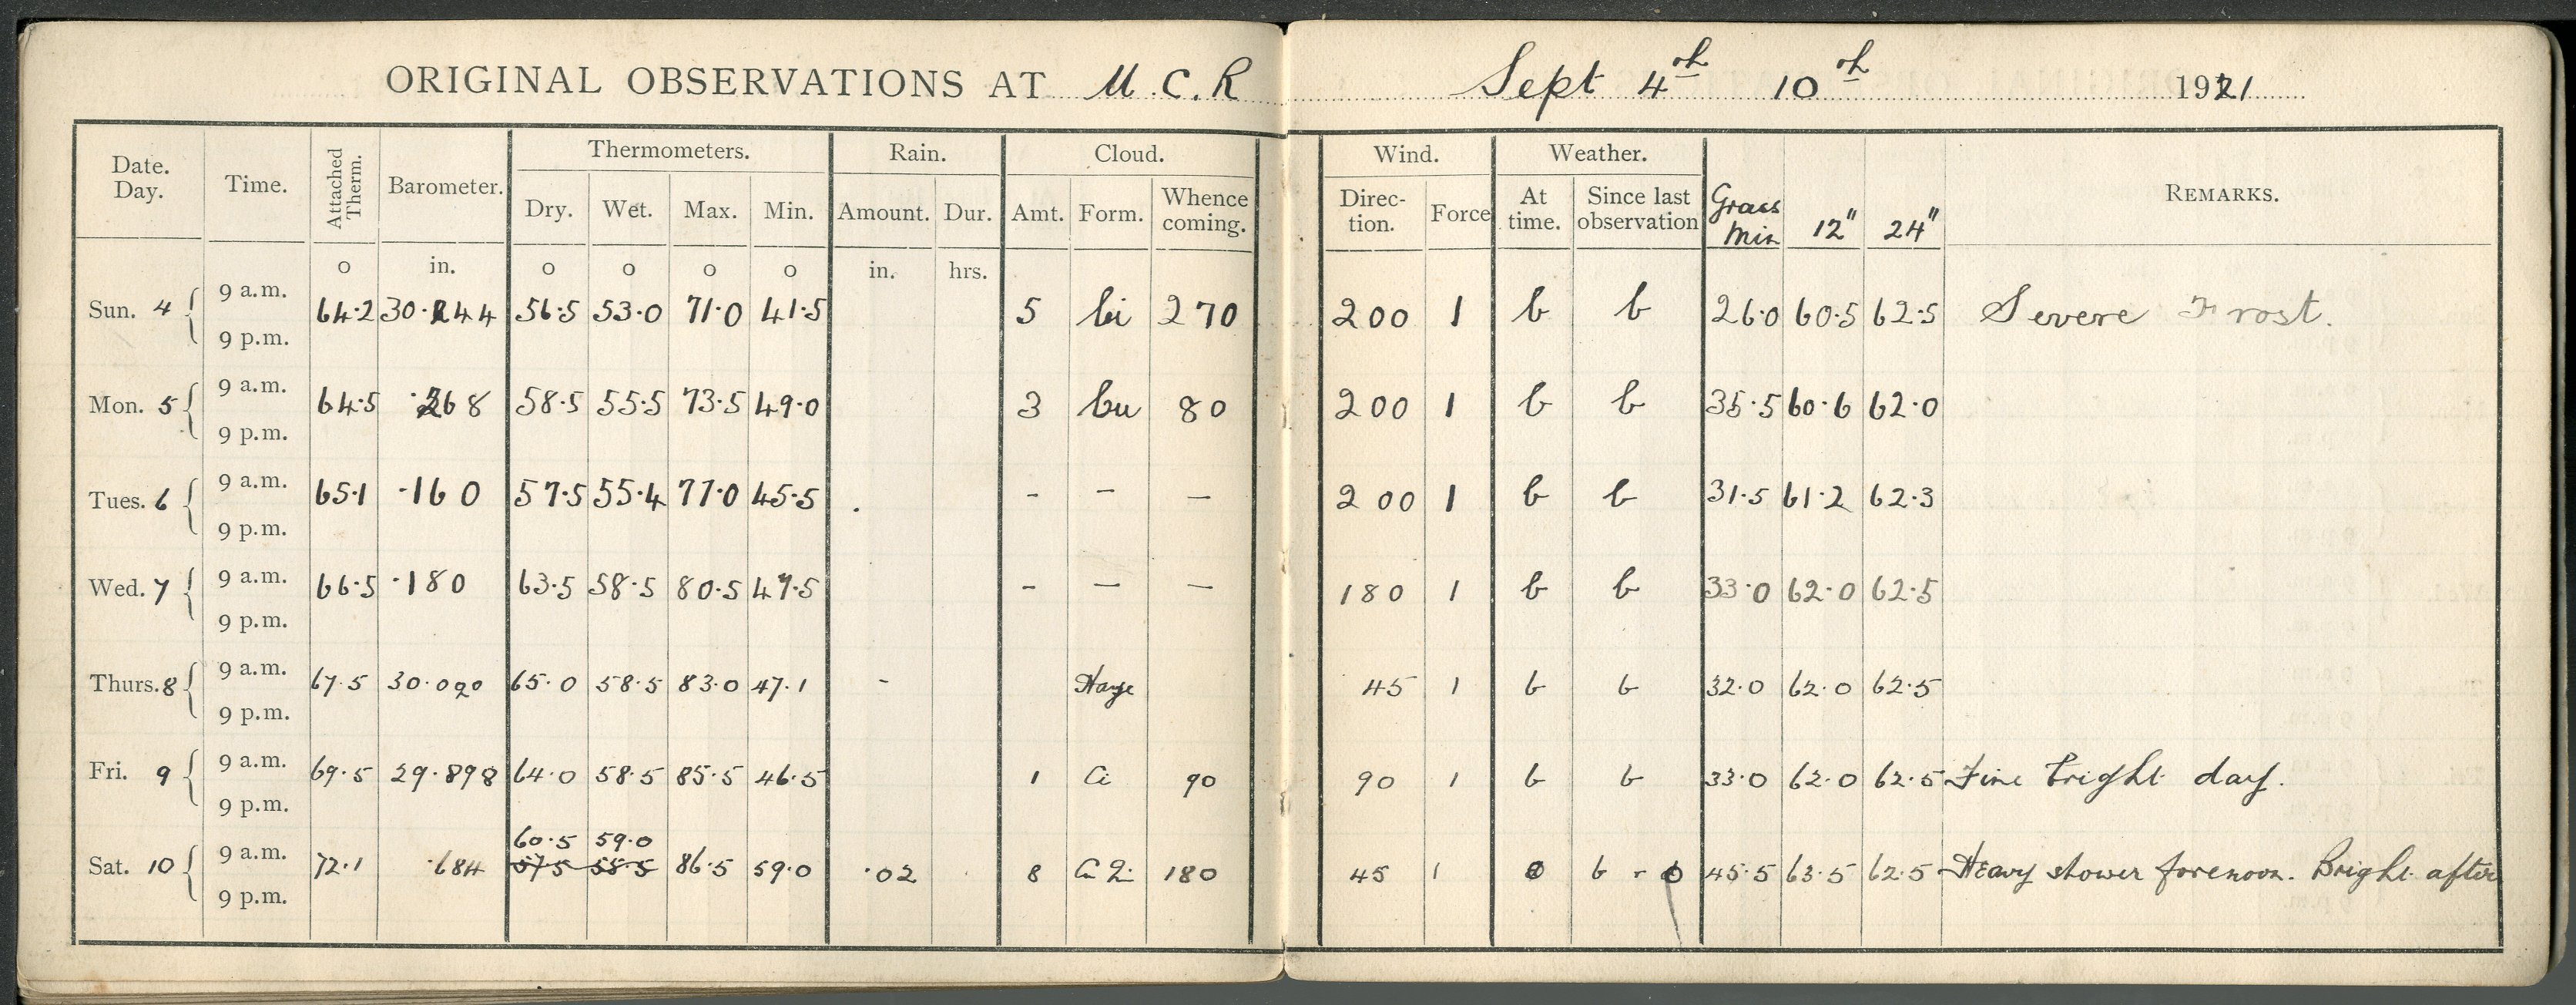 ORIGINAL OBSERVATIONS AT M.C.R Sept 4th 10th 1921
Date. Day. Time. Attached Therm. Barometer. Thermometers. Rain. Cloud. Wind. Weather. Grass Min 12" 24" REMARKS.
Dry. Wet. Max. Min. Amount. Dur. Amt. Form. Whence coming. Direc- tion. Force At time. Since last observation
o in. o o o o in. hrs.
9 a.m.
Sun. 4 64.2 30.244 56.5 53.0 71.0 41.5 5 Ci 270 200 1 b b 26.0 60.5 62.5 Severe Frost.
9 p.m.
9 a.m.
Mon. 5 64.5 .268 58.5 55.5 73.5 49.0 3 Cu 80 200 1 b b 35.5 60.6 62.0
9 p.m.
9 a.m.
Tues. 6 65.1 .160 57.5 55.4 77.0 45.5 - - - 200 1 b b 31.5 61.2 62.3
9 p.m.
9 a.m.
Wed. 7 66.5 .180 63.5 58.5 80.5 47.5 - - - 180 1 b b 33.0 62.0 62.5
9 p.m.
9 a.m.
Thurs. 8 67.5 30.090 65.0 58.5 83.0 47.1 - Haze 45 1 b b 32.0 62.0 62.5
9 p.m.
9 a.m.
Fri. 9 69.5 29.898 64.0 58.5 85.5 46.5 1 Ci 90 90 1 b b 33.0 62.0 62.5 Fine bright day.
9 p.m.
60.5 59.0
9 a.m.
Sat. 10 72.1 .684 57.5 58.5 86.5 59.0 .02 8 180 45 1 o b - o 45.5 63.5 62.5 Heavy shower forenoon. Bright after
9 p.m.